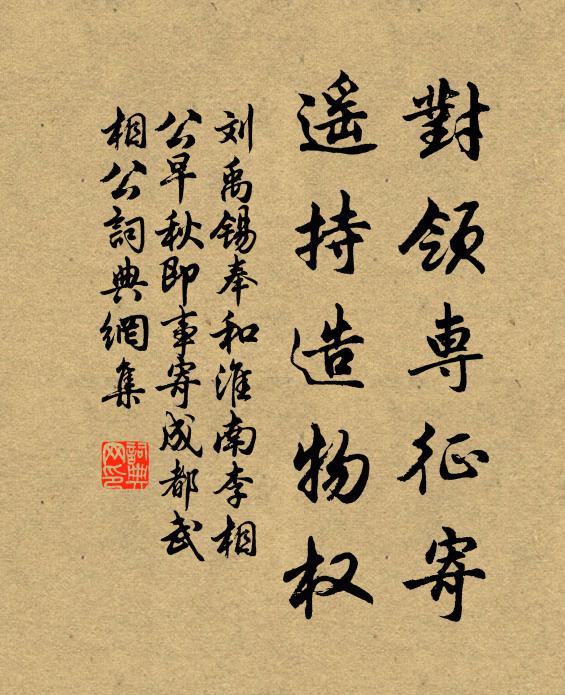 對領專征寄
遥持造物权
刘禹锡奉和淮南李相
公早秋即事寄成都武
相公詞典網集
詞典
网印